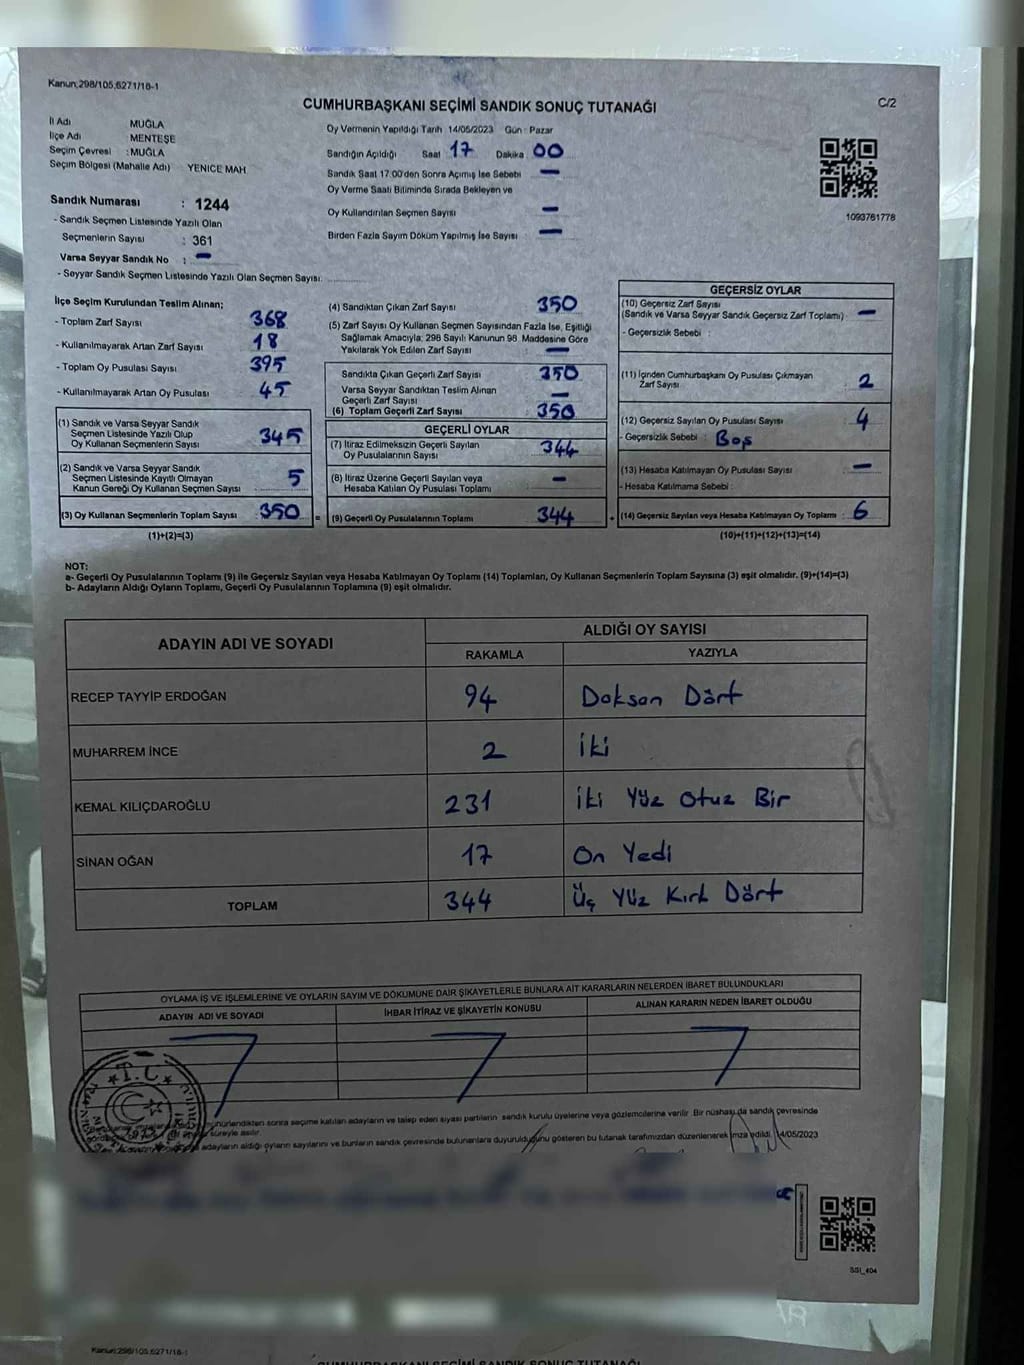 Kanun;298/105,6271/16-1
C/2
CUMHURBAŞKANI SEÇİMİ SANDIK SONUÇ TUTANAĞI
İl Adı MUĞLA
İlçe Adı : MENTEŞE
Seçim Çevresi : MUĞLA
Seçim Bölgesi (Mahalle Adı) YENİCE MAH
Sandık Numarası : 1244
- Sandık Seçmen Listesinde Yazılı Olan
Seçmenlerin Sayısı : 361
Varsa Seyyar Sandık No : —
- Seyyar Sandık Seçmen Listesinde Yazılı Olan Seçmen Sayısı:
Oy Vermenin Yapıldığı Tarih 14/05/2023 Gün : Pazar
Sandığın Açıldığı Saat 17 Dakika : 00
Sandık Saat 17:00'den Sonra Açılmış İse Sebebi —
Oy Verme Saati Bitiminde Sırada Bekleyen ve
Oy Kullandırılan Seçmen Sayısı —
Birden Fazla Sayım Döküm Yapılmış İse Sayısı : —
1093761778
İlçe Seçim Kurulundan Teslim Alınan;
- Toplam Zarf Sayısı 368
- Kullanılmayarak Artan Zarf Sayısı 18
- Toplam Oy Pusulası Sayısı 395
- Kullanılmayarak Artan Oy Pusulası 45
(1) Sandık ve Varsa Seyyar Sandık
Seçmen Listesinde Yazılı Olup
Oy Kullanan Seçmenlerin Sayısı 345
(2) Sandık ve Varsa Seyyar Sandık
Seçmen Listesinde Kayıtlı Olmayan
Kanun Gereği Oy Kullanan Seçmen Sayısı 5
(3) Oy Kullanan Seçmenlerin Toplam Sayısı 350 =
(1)+(2)=(3)
(4) Sandıktan Çıkan Zarf Sayısı 350
(5) Zarf Sayısı Oy Kullanan Seçmen Sayısından Fazla İse, Eşitliği
Sağlamak Amacıyla; 298 Sayılı Kanunun 98. Maddesine Göre
Yakılarak Yok Edilen Zarf Sayısı —
Sandıkta Çıkan Geçerli Zarf Sayısı 350
Varsa Seyyar Sandıktan Teslim Alınan
Geçerli Zarf Sayısı —
(6) Toplam Geçerli Zarf Sayısı 350
GEÇERLİ OYLAR
(7) İtiraz Edilmeksizin Geçerli Sayılan
Oy Pusulalarının Sayısı 344
(8) İtiraz Üzerine Geçerli Sayılan veya
Hesaba Katılan Oy Pusulası Toplamı —
(9) Geçerli Oy Pusulalarının Toplamı 344 +
GEÇERSİZ OYLAR
(10) Geçersiz Zarf Sayısı
(Sandık ve Varsa Seyyar Sandık Geçersiz Zarf Toplamı) : —
- Geçersizlik Sebebi :
(11) İçinden Cumhurbaşkanı Oy Pusulası Çıkmayan
Zarf Sayısı 2
(12) Geçersiz Sayılan Oy Pusulası Sayısı : 4
- Geçersizlik Sebebi : Boş
(13) Hesaba Katılmayan Oy Pusulası Sayısı : —
- Hesaba Katılmama Sebebi :
(14) Geçersiz Sayılan veya Hesaba Katılmayan Oy Toplamı : 6
(10)+(11)+(12)+(13)=(14)
NOT:
a- Geçerli Oy Pusulalarının Toplamı (9) ile Geçersiz Sayılan veya Hesaba Katılmayan Oy Toplamı (14) Toplamları, Oy Kullanan Seçmenlerin Toplam Sayısına (3) eşit olmalıdır. (9)+(14)=(3)
b- Adayların Aldığı Oyların Toplamı, Geçerli Oy Pusulalarının Toplamına (9) eşit olmalıdır.
ADAYIN ADI VE SOYADI ALDIĞI OY SAYISI
RAKAMLA YAZIYLA
RECEP TAYYİP ERDOĞAN 94 Doksan Dört
MUHARREM İNCE 2 İki
KEMAL KILIÇDAROĞLU 231 İki Yüz Otuz Bir
SİNAN OĞAN 17 On Yedi
TOPLAM 344 Üç Yüz Kırk Dört
OYLAMA İŞ VE İŞLEMLERİNE VE OYLARIN SAYIM VE DÖKÜMÜNE DAİR ŞİKAYETLERLE BUNLARA AİT KARARLARIN NELERDEN İBARET BULUNDUKLARI
ADAYIN ADI VE SOYADI İHBAR İTİRAZ VE ŞİKAYETİN KONUSU ALINAN KARARIN NEDEN İBARET OLDUĞU
T.C
sonra seçime katılan adayların ve talep eden siyasi partilerin sandık kurulu üyelerine veya gözlemcilerine verilir. Bir nüshası da sandık çevresinde
süreyle asılır.
adayların aldığı oyların sayılarını ve bunların sandık çevresinde bulunanlara duyurulduğunu gösteren bu tutanak tarafımızdan düzenlenerek imza edildi. 14/05/2023
SSI_404
Kanun;298/105,6271/16-1
CUMHURBAŞKANI SEÇİMİ SANDIK SONUÇ TUTANAĞI